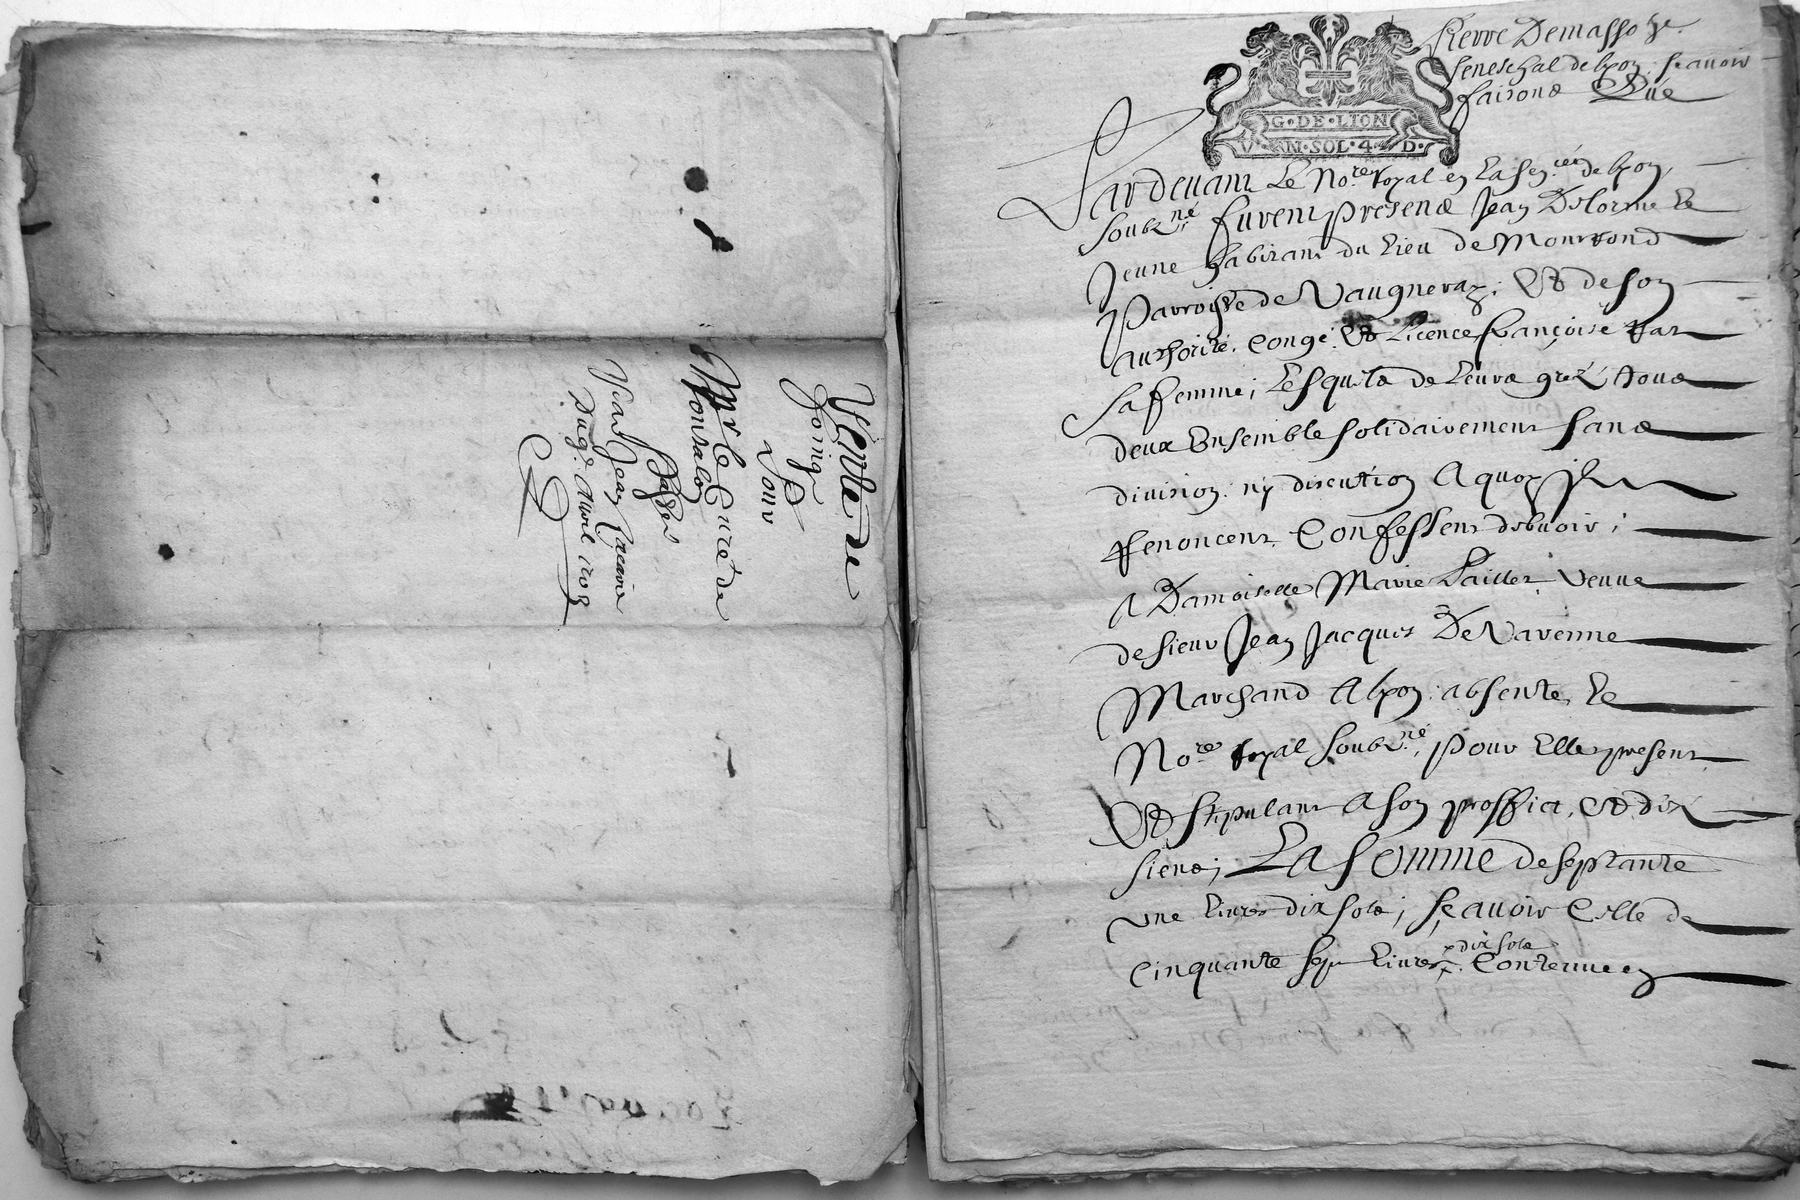 Vente de
foing
Pour
Mr le Curé de
Monrald
Basses
Jean
Du 9e Avril 1708
Pierre Demasso &c
seneschal de lyon scavoir
faisons Que
G·DE·LION
V·N·SOL·4·D·
Pardevant Le Nore royal en La senée de lyon
soubzné furent presens Jean Delorme le
Jeune habitant du lieu de Montrond
Parroisse de Vaugneray, Et de son
authorité, Congé, Et Licence françoise
sa femme; Lesquels de Leurs grez tous
deux Ensemble solidairement sans
division ny discution A quoy ils
renoncent Confessent debvoir;
A Damoiselle Marie Pailler veuve
de sieur Jean Jacques De Varenne
Marchand A lyon absente, le
Nore royal soubzné, pour Elle present
Et stipulant A son proffict, Et des
siens; La somme de septante
une livres dix sols; scavoir Celle de
Cinquante sept livres dix sols Contenue en